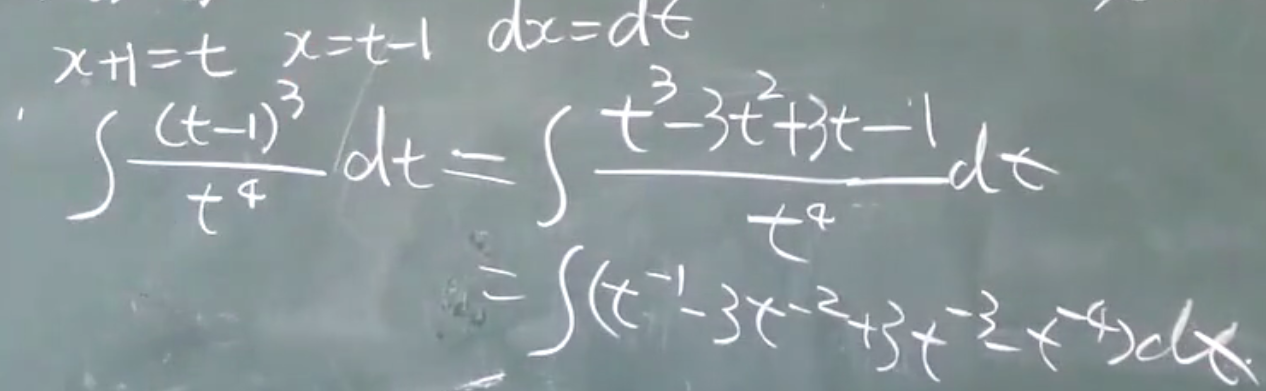 x+1=t x=t-1 dx=dt
∫ (t-1)³/t⁴ dt = ∫ (t³-3t²+3t-1)/t⁴ dt
= ∫(t⁻¹-3t⁻²+3t⁻³-t⁻⁴)dt